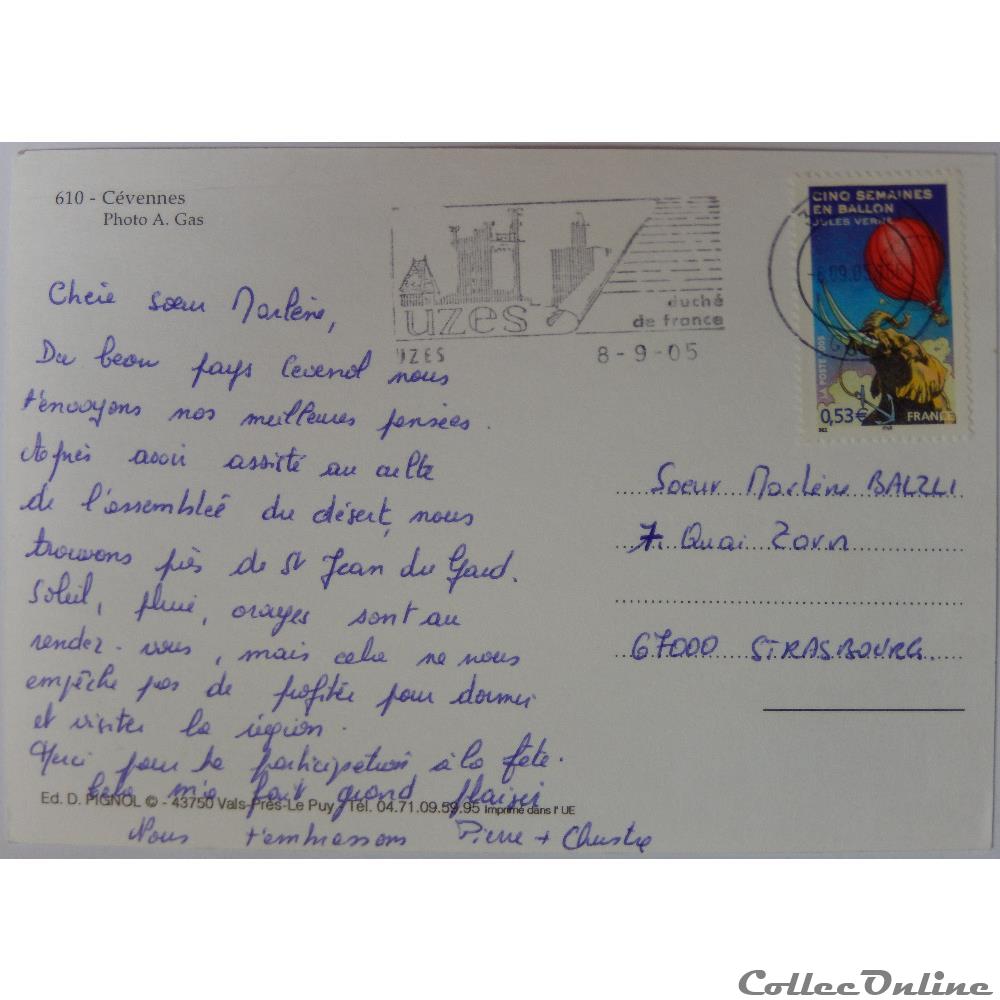 610 - Cévennes
Photo A. Gas
uzes
duché
de france
UZES
8-9-05
CINQ SEMAINES
EN BALLON
JULES VERNE
LA POSTE 2005
0,53€
FRANCE
Chère sœur Marlène,
Du beau pays Cevenol nous
t'envoyons nos meilleures pensées.
Après avoir assisté au culte
de l'assemblée du désert, nous
trouvons près de St Jean du Gard.
Soleil, pluie, orages sont au
rendez-vous, mais cela ne nous
empêche pas de profiter pour dormir
et visiter la région.
Merci pour ta participation à la fête.
Cela m'a fait grand plaisir
Ed. D. PIGNOL © - 43750 Vals-Près-Le Puy / Tél. 04.71.09.59.95 Imprimé dans l'UE
Nous t'embrassons Pierre +
Soeur Marlène BALZLI
7 Quai Zorn
67000 STRASBOURG
CollecOnline